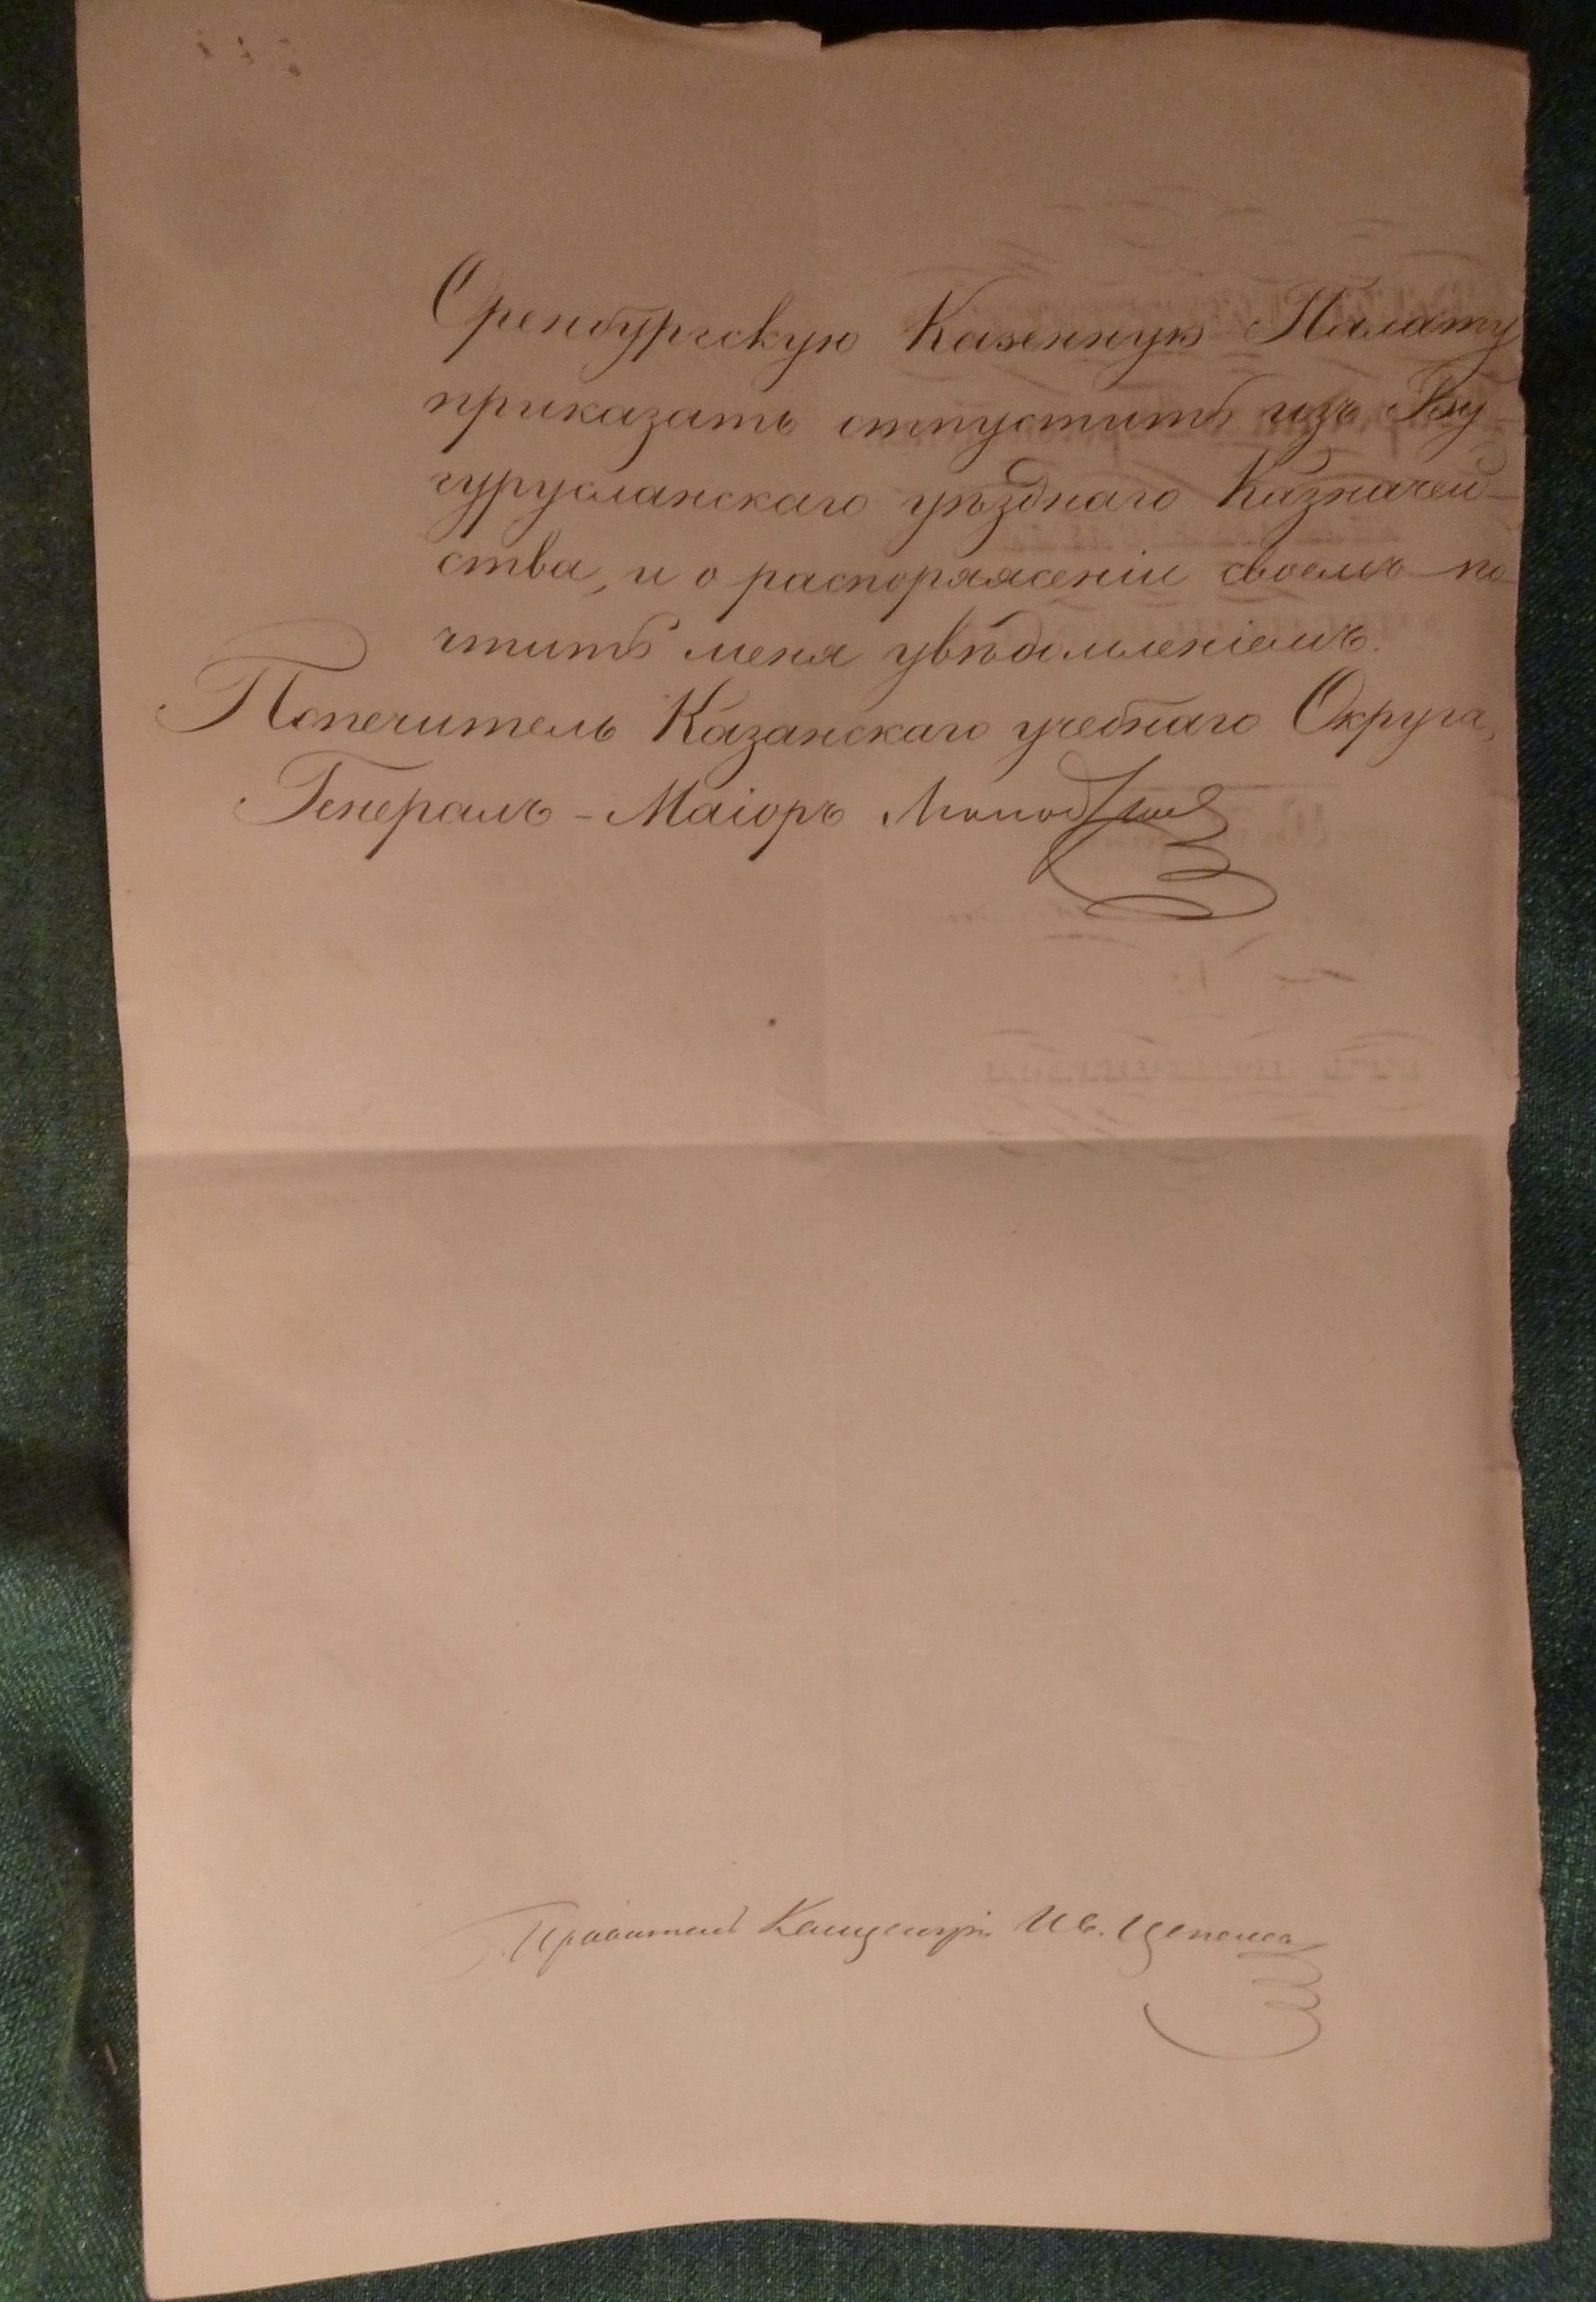 Оренбургскую Казенную Палату
приказать отпустить изъ Бу-
гурусланскаго уѣзднаго Казначей-
ства, и о распоряженіи своемъ по-
чтить меня увѣдомленіемъ.
Попечитель Казанскаго учебнаго Округа,
Генералъ-Маіоръ Молоствов
Правитель Канцеляріи Ив.